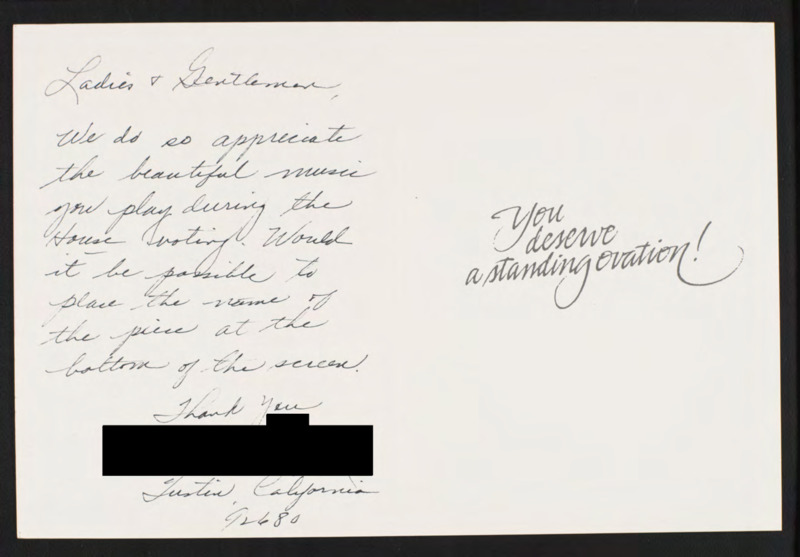 Ladies & Gentlemen,
We do so appreciate
the beautiful music
you play during the
House voting. Would
it be possible to
place the name of
the piece at the
bottom of the screen.
Thank You
Tustin, California
92680
You
deserve
a standing ovation!